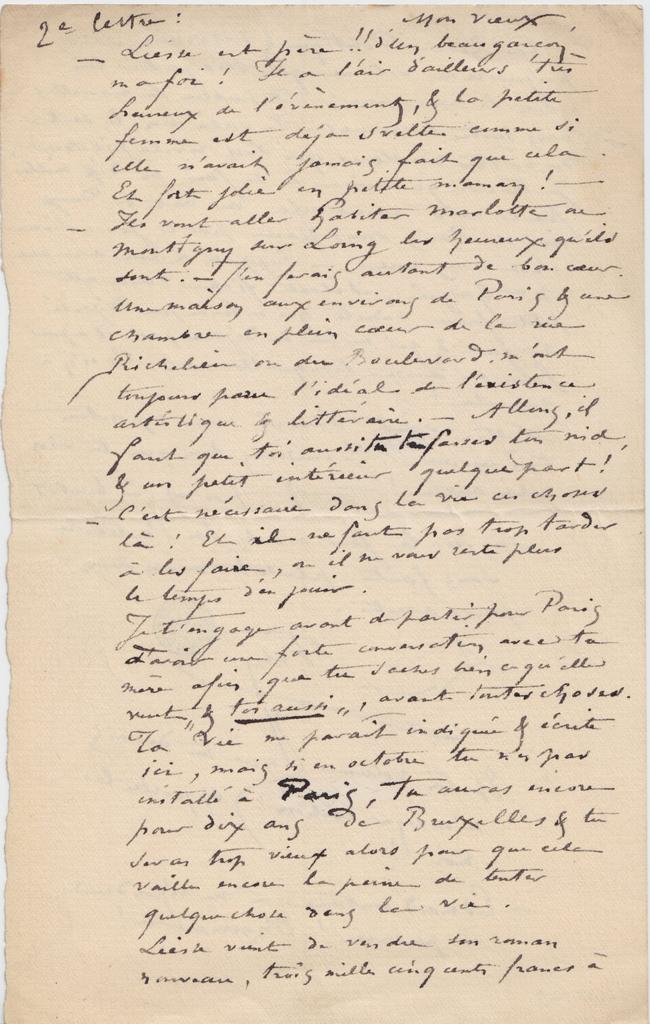 2e lettre : Mon vieux
— Liesse est père !! d'un beau garçon,
ma foi ! Il a l'air d'ailleurs très
heureux de l'évènement, & la petite
femme est déjà svelte comme si
elle n'avait jamais fait que cela.
Et fort jolie en petite maman ! —
— Ils vont aller habiter Marlotte ou
Montigny sur Loing les heureux qu'ils
sont. — J'en ferais autant de bon cœur.
Une maison aux environs de Paris & une
chambre en plein cœur de la rue
Richelieu ou du Boulevard. m'ont
toujours paru l'idéal de l'existence
artistique & littéraire. — Allons, il
faut que toi aussi tu te fasses ton nid,
& un petit intérieur quelque part !
— C'est nécessaire dans la vie ces choses
là ! Et il ne faut pas trop tarder
à les faire, ou il ne vous reste plus
le temps d'en jouir.
Je t'engage avant de partir pour Paris
d'avoir une forte conversation avec ta
mère afin que tu saches bien ce qu'elle
veut, & „toi aussi„, avant toutes choses.
Ta vie me parait indiquée & écrite
ici, mais si en octobre tu n'es pas
installé à Paris, tu auras encore
pour dix ans de Bruxelles & tu
seras trop vieux alors pour que cela
vaille encore la peine de tenter
quelque chose dans la vie.
Liesse vient de vendre son roman
nouveau, trois mille cinq cents francs à